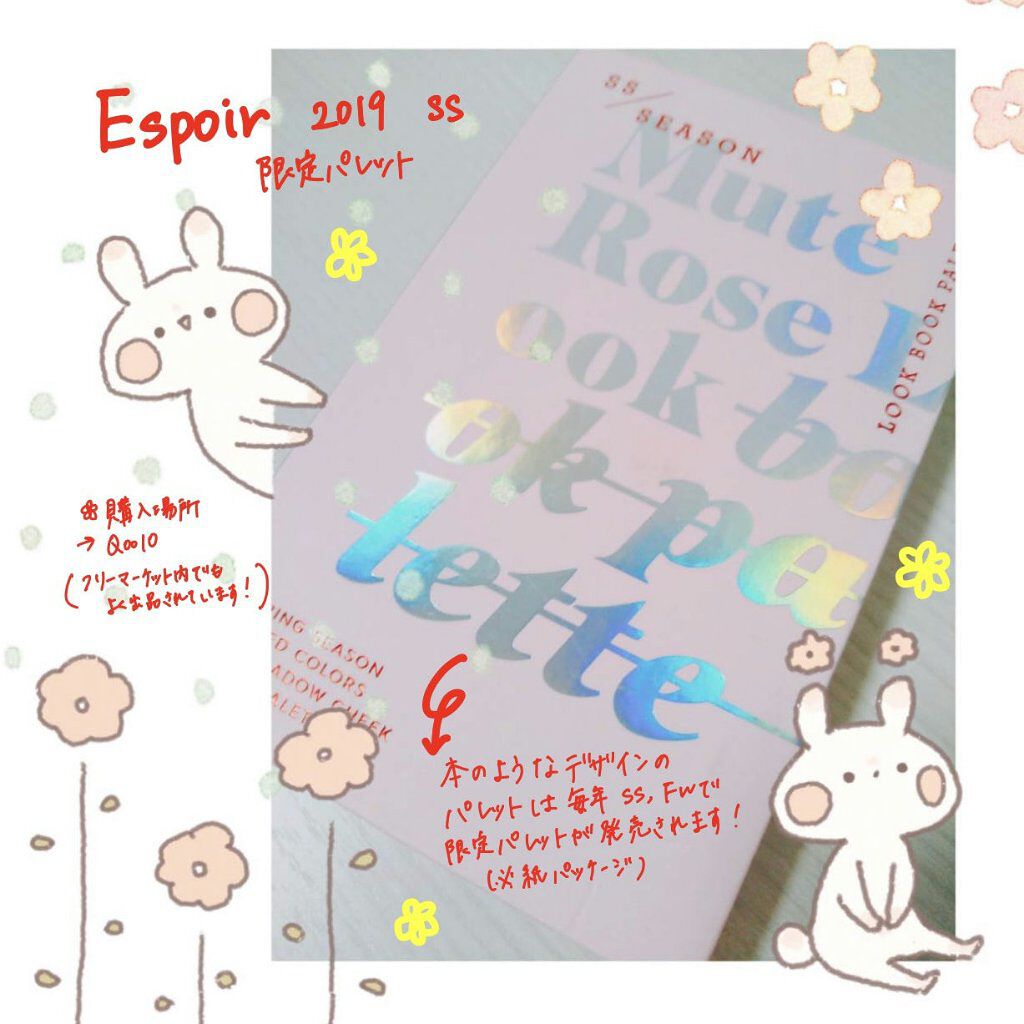 Espoir 2019 SS
限定パレット
SS/SEASON
Mute
Rose L
ook bo
ok pa
lette
LOOK BOOK PAL
RING SEASON
ED COLORS
ADOW CHEEK
ALET
❀購入場所
→ Qoo10
(フリーマーケット内でも
よく出品されています!)
本のようなデザインの
パレットは毎年 SS, FWで
限定パレットが発売されます!
(※紙パッケージ)